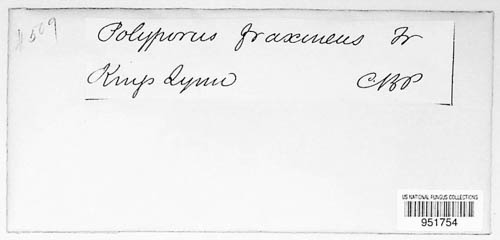 #509
Polyporus fraxineus Fr
Kings Lynn CBP
US NATIONAL FUNGUS COLLECTIONS
951754